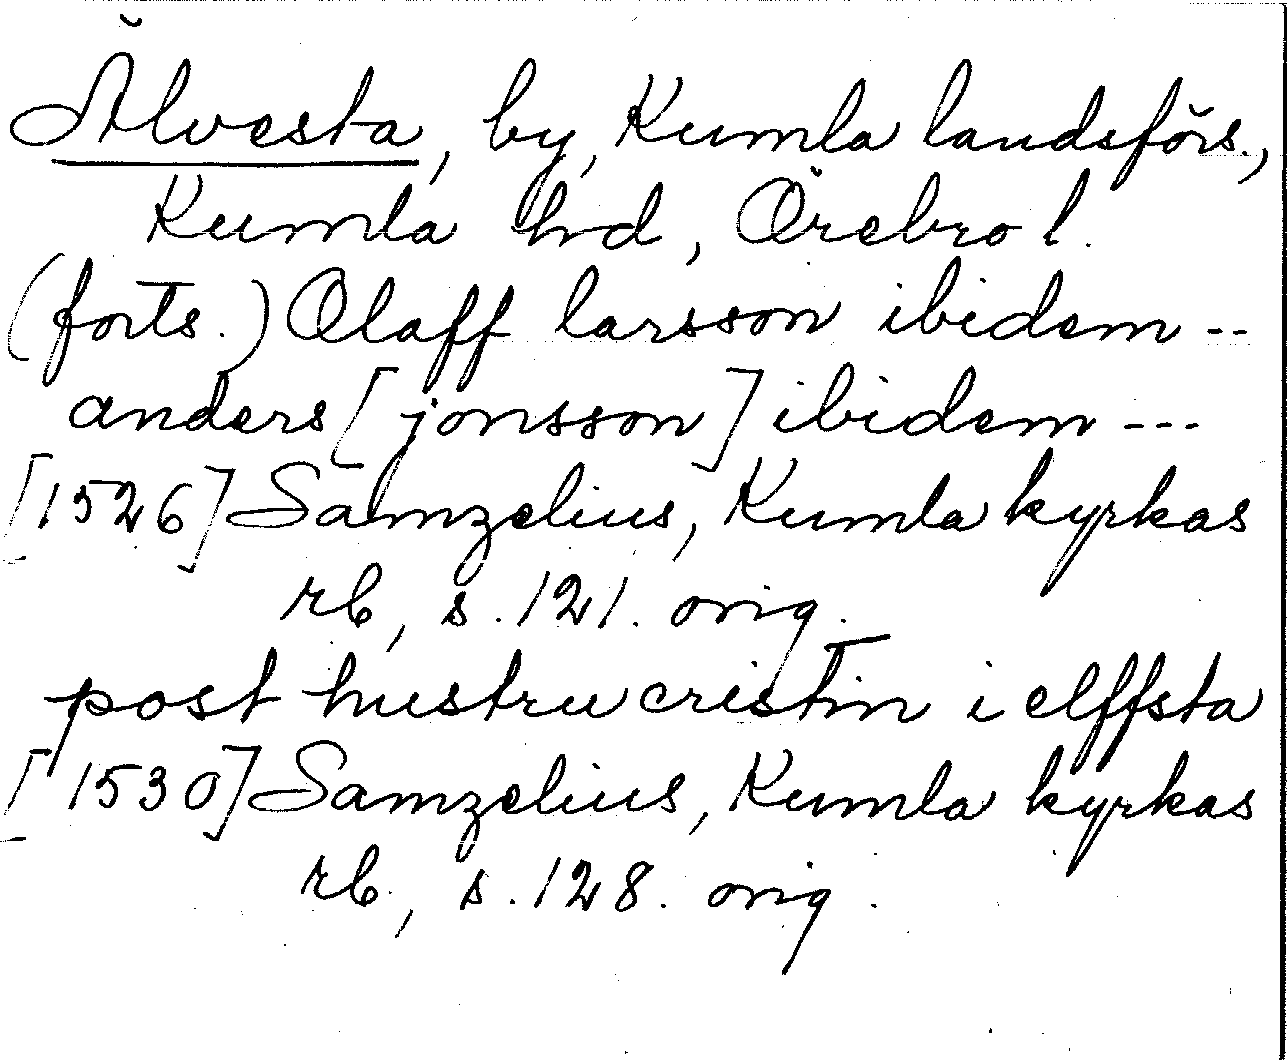 Älvesta, by, Kumla landsförs.,
Kumla hd, Örebro l.
(forts.) Olaff larsson ibidem --
anders [jonsson] ibidem ---
[1526] Samzelius, Kumla kyrkas
rb, s. 121. orig.
post hustru cristin i elffsta
[1530] Samzelius, Kumla kyrkas
rb., s. 128. orig.